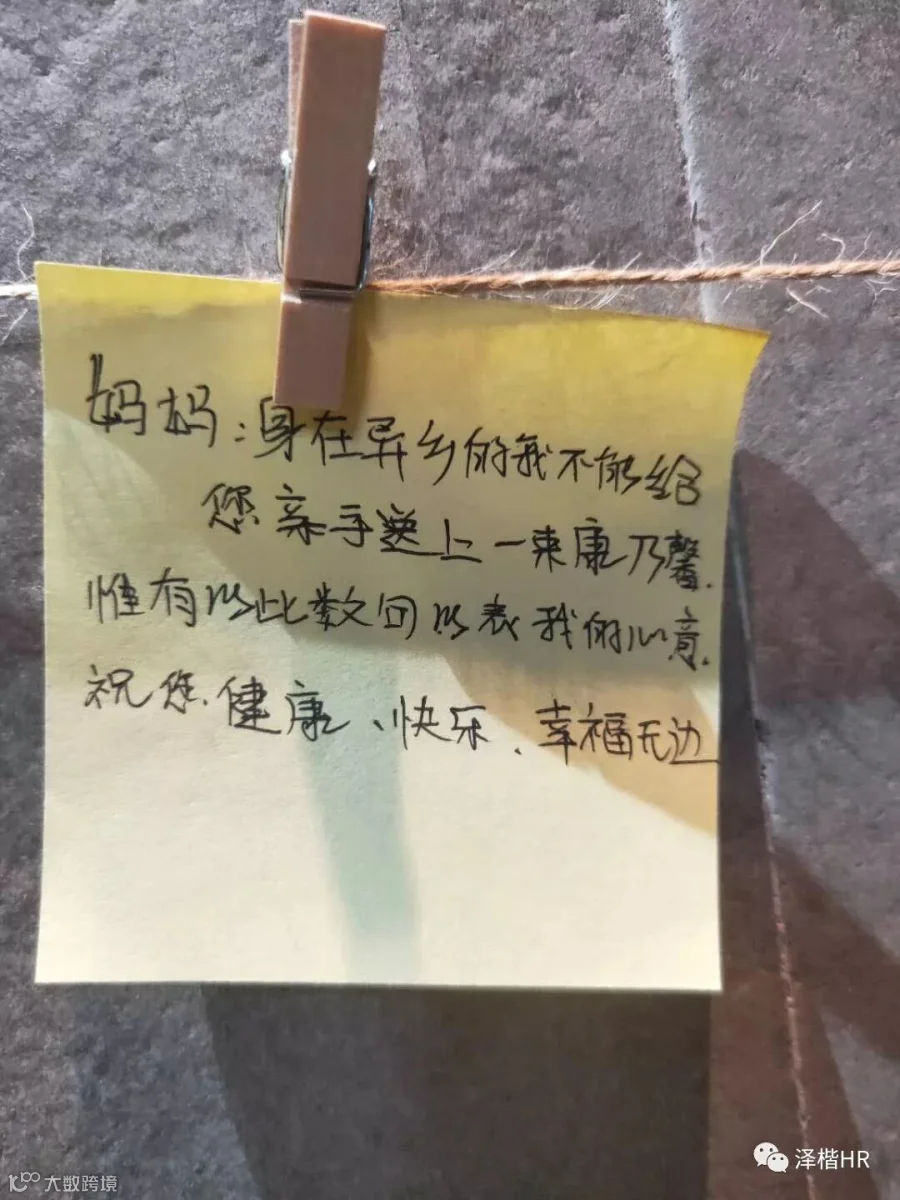 妈妈：身在异乡的我不能给
您亲手送上一束康乃馨.
惟有以此数句以表我的心意.
祝您.健康、快乐、幸福无边
泽楷HR
大数跨境